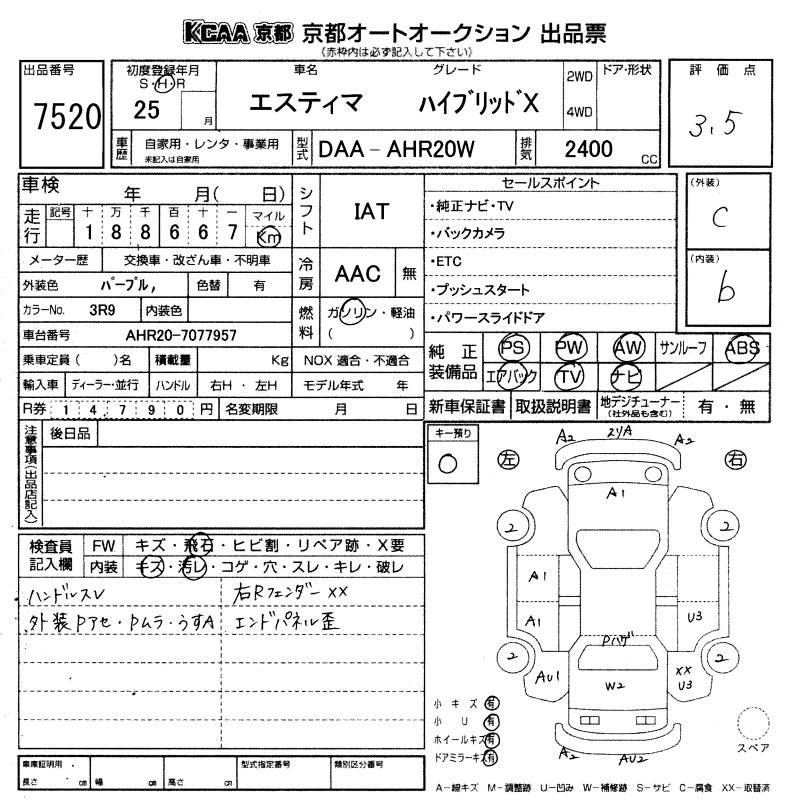 KCAA 京都 京都オートオークション 出品票
(赤枠内は必ず記入して下さい)
出品番号 7520
初度登録年月 S・H・R 25 月
車名 エスティマ
グレード ハイブリッドX
2WD 4WD
ドア・形状
評価点 3.5
車歴 自家用・レンタ・事業用
未記入は自家用
型式 DAA-AHR20W
排気 2400 CC
車検 年 月( 日)
走行 記号 十 万 千 百 十 一 マイル
1 8 8 6 6 7 Km
メーター歴 交換車・改ざん車・不明車
外装色 パープル, 色替 有
カラーNo. 3R9 内装色
車台番号 AHR20-7077957
乗車定員( )名 積載量 Kg
輸入車 ディーラー・並行 ハンドル 右H・左H
R券 1 4,7 9 0 円 名変期限 月 日
シフト IAT
冷房 AAC 無
燃料 ガソリン・軽油
( )
NOX 適合・不適合
モデル年式 年
セールスポイント
・純正ナビ・TV
・バックカメラ
・ETC
・プッシュスタート
・パワースライドドア
(外装) C
(内装) b
純正装備品 PS PW AW サンルーフ ABS
エアバック TV ナビ
新車保証書 取扱説明書 地デジチューナー(社外品も含む) 有・無
注意事項(出品店記入) 後日品
キー預り ○
検査員記入欄 FW キズ・飛石・ヒビ割・リペア跡・X要
内装 キズ・汚レ・コゲ・穴・スレ・キレ・破レ
ハンドルスレ 右Rフェンダー XX
外装Pアセ・Pムラ・うすA エンドパネル歪
左 右
A2 スリA A2
A1
2 2
A1
A1 U3
Pハゲ
2 2
AU1 W2 XX U3
A2 AU2
小キズ 有
小U 有
ホイールキズ 有
ドアミラーキズ 有
スペア
車庫証明用 長さ cm 幅 cm 高さ cm
型式指定番号 類別区分番号
A-線キズ M-調整跡 U-凹み W-補修跡 S-サビ C-腐食 XX-取替済